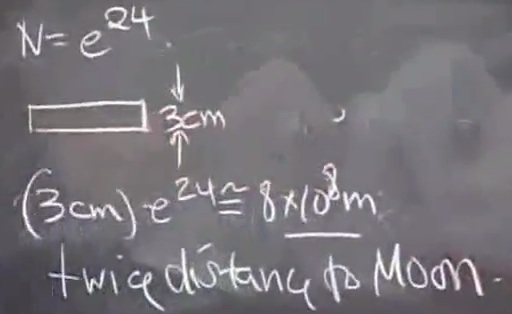 N = e^24
3cm
(3cm) · e^24 ≅ 8×10^8 m
twice distance to Moon.